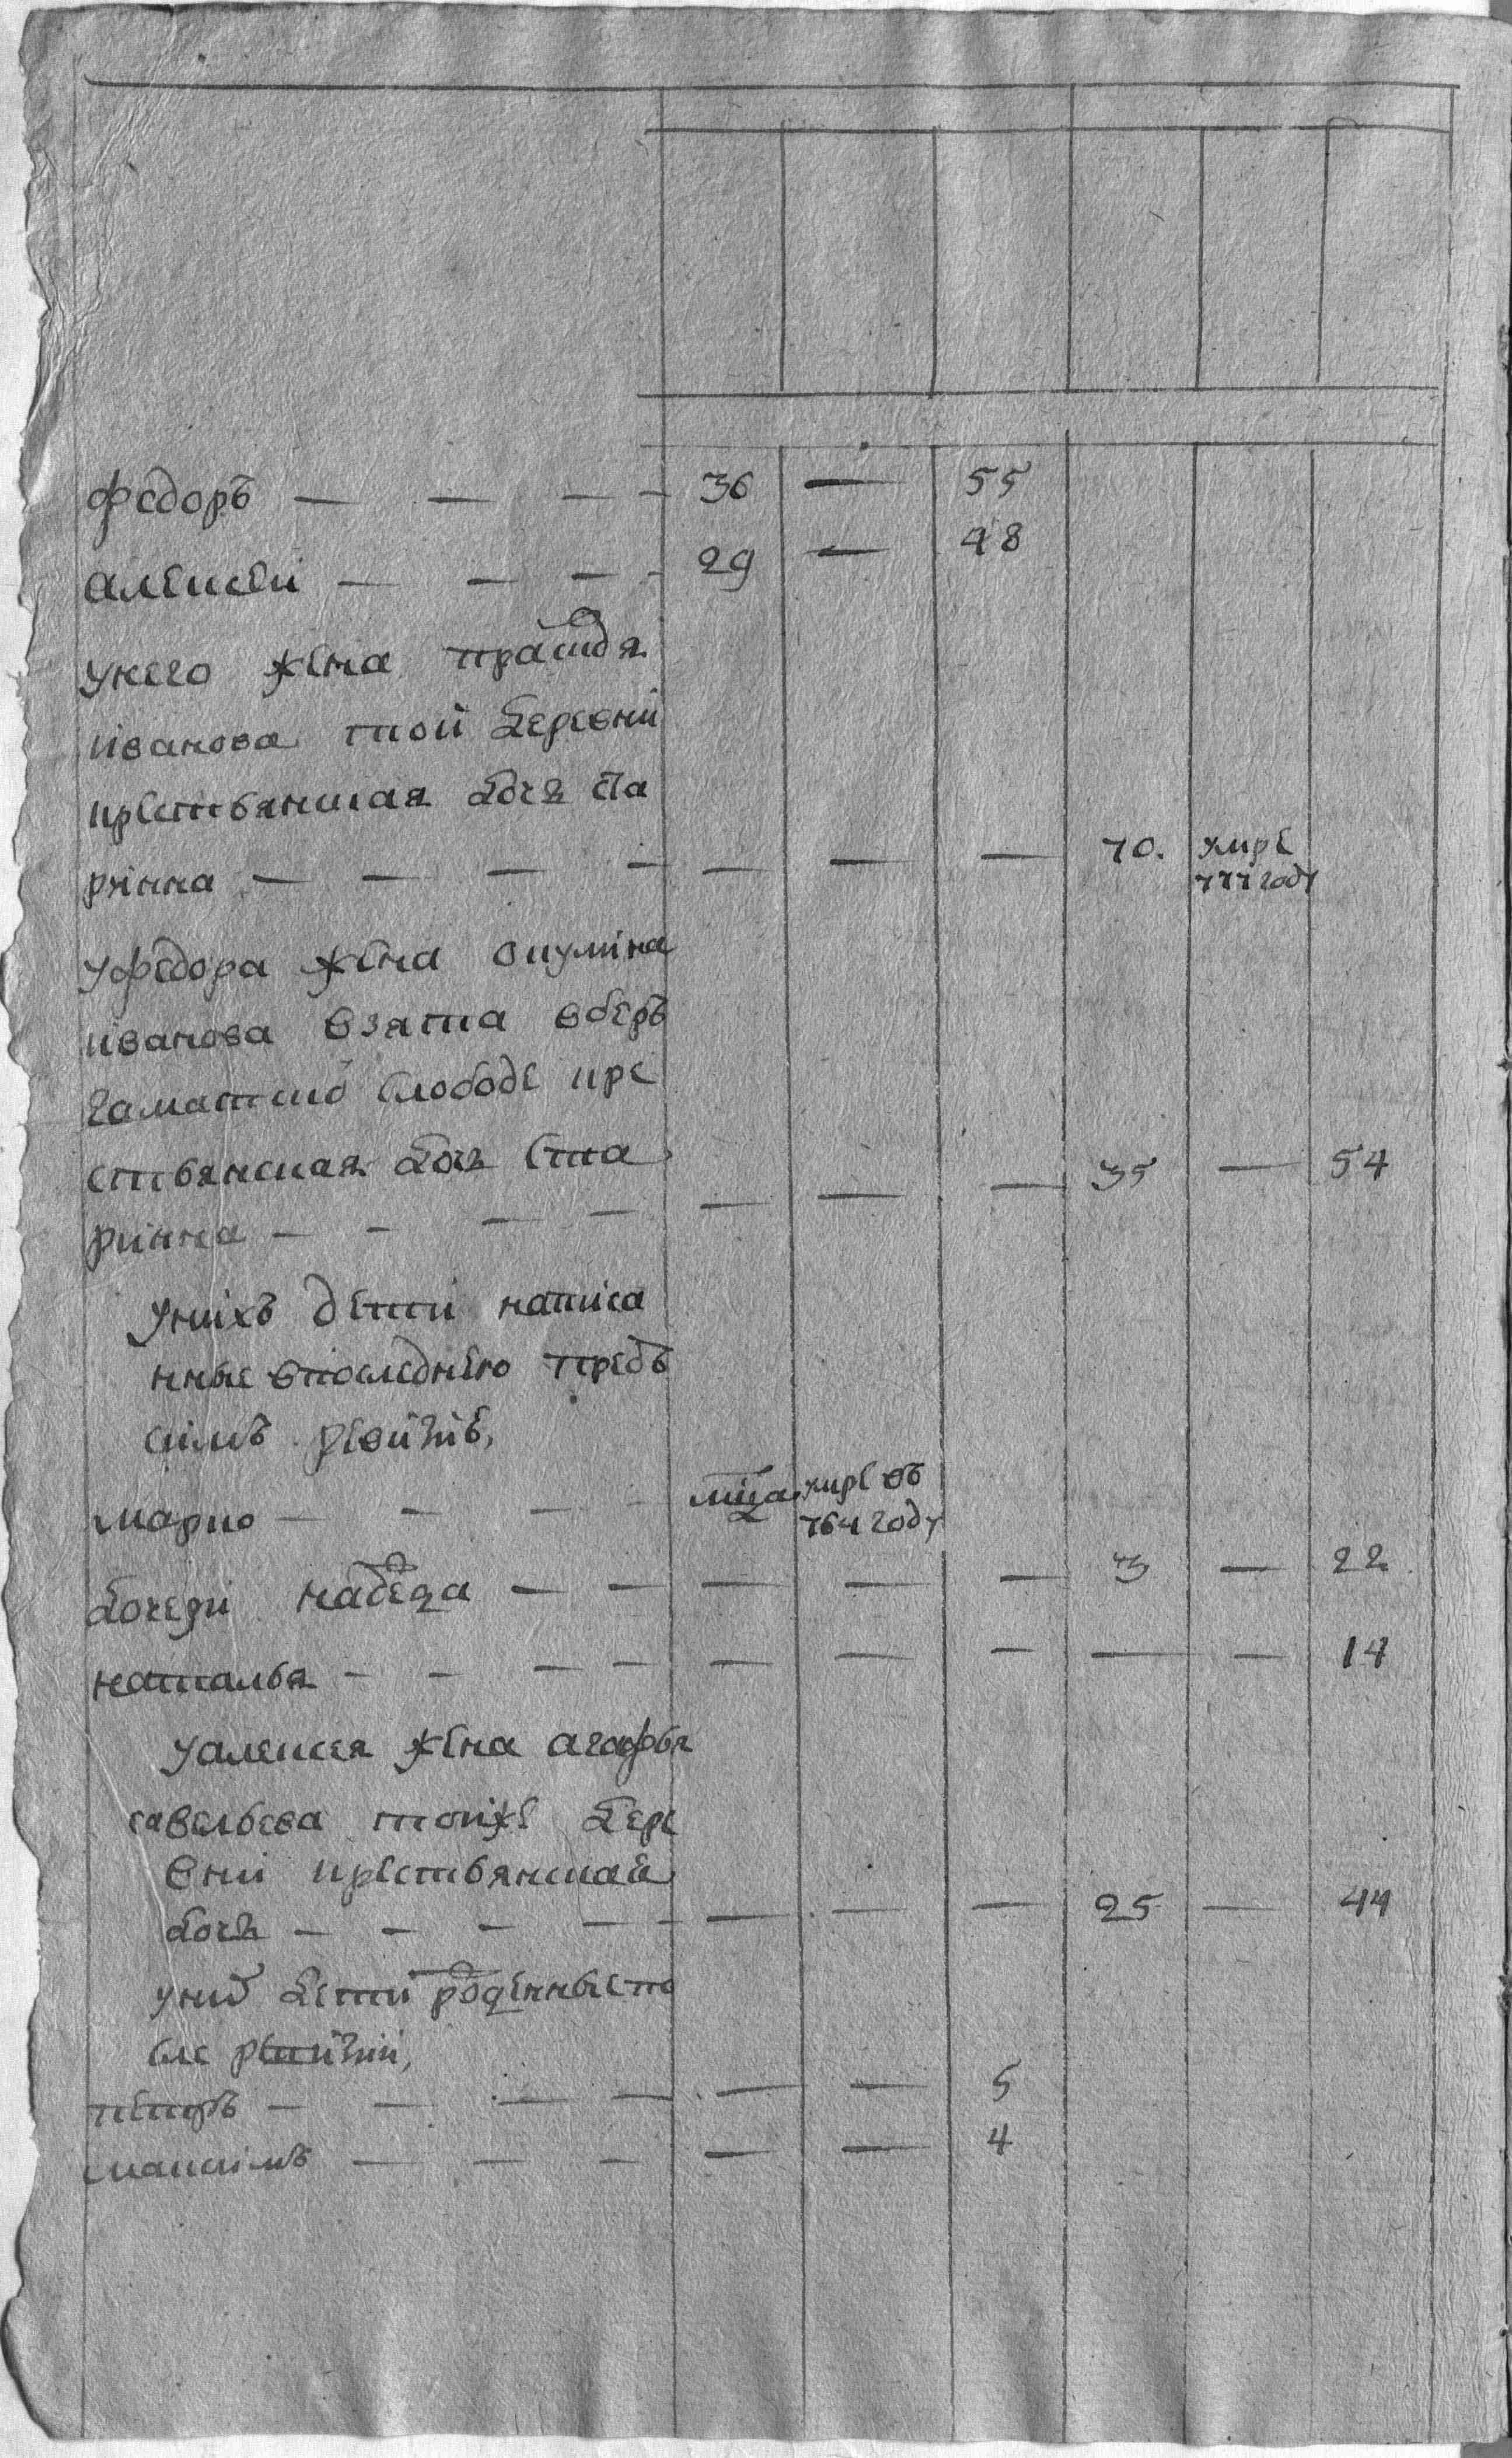 федоръ — — — — 36 — 55
алексей — — — — 29 — 48
унего жена праскдя
иванова той деревни
крестьянская дочь ста
рінна — — — — — — — 70. умре 777 году
уфедора жена окуліна
иванова взята вберъ
гаматско слободе кре
стьянская дочь ста
ринна — — — — — — — 35 — 54
унихъ дети напіса
нные впоследнею предъ
симъ ревизіе,
марко — — — — мцъа умре въ 764 году
дочери надежда — — — — — 3 — 22
наталья — — — — — — — — — 14
уалексея жена агафья
савельева тойже дере
вни крестьянская
дочь — — — — — — — 25 — 44
уних дети рожденные по
сле ревизии,
петръ — — — — — — 5
максимъ — — — — — 4